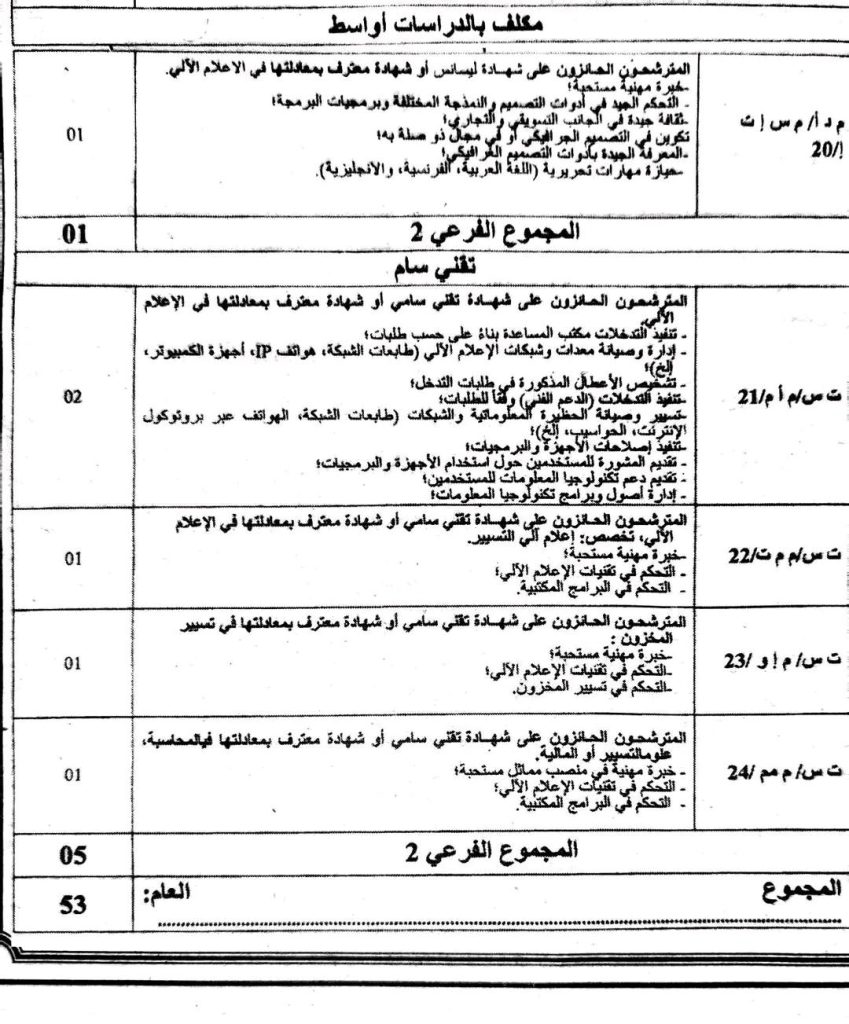 مكلف بالدراسات أواسط
م د أ/ م س إ ت
إ/20
المترشحون الحائزون على شهادة ليسانس أو شهادة معترف بمعادلتها في الاعلام الآلي.
-خبرة مهنية مستحبة؛
- التحكم الجيد في أدوات التصميم والنمذجة المختلفة وبرمجيات البرمجة؛
-ثقافة جيدة في الجانب التسويقي والتجاري؛
تكوين في التصميم الجرافيكي أو في مجال ذو صلة به؛
-المعرفة الجيدة بأدوات التصميم الغرافيكي؛
-حيازة مهارات تحريرية (اللغة العربية، الفرنسية، والانجليزية).
01
المجموع الفرعي 2
01
تقني سام
ت س/م أ م/21
المترشحون الحائزون على شهادة تقني سامي أو شهادة معترف بمعادلتها في الإعلام
الآلي.
- تنفيذ التدخلات مكتب المساعدة بناءً على حسب طلبات؛
- إدارة وصيانة معدات وشبكات الإعلام الآلي (طابعات الشبكة، هواتف IP، أجهزة الكمبيوتر،
إلخ)؛
- تشخيص الأعطال المذكورة في طلبات التدخل؛
-تنفيذ التدخلات (الدعم الفني) وفقا للطلبات؛
-تسيير وصيانة الحظيرة المعلوماتية والشبكات (طابعات الشبكة، الهواتف عبر بروتوكول
الإنترنت، الحواسيب، إلخ)؛
-تنفيذ إصلاحات الأجهزة والبرمجيات؛
- تقديم المشورة للمستخدمين حول استخدام الأجهزة والبرمجيات؛
- تقديم دعم تكنولوجيا المعلومات للمستخدمين؛
- إدارة أصول وبرامج تكنولوجيا المعلومات؛
02
ت س/م م ت/22
المترشحون الحائزون على شهادة تقني سامي أو شهادة معترف بمعادلتها في الإعلام
الآلي، تخصص: إعلام آلي التسيير.
-خبرة مهنية مستحبة؛
- التحكم في تقنيات الإعلام الآلي؛
- التحكم في البرامج المكتبية.
01
ت س/ م إ و /23
المترشحون الحائزون على شهادة تقني سامي أو شهادة معترف بمعادلتها في تسيير
المخزون :
-خبرة مهنية مستحبة؛
-التحكم في تقنيات الإعلام الآلي؛
-التحكم في تسيير المخزون.
01
ت س/ م مم /24
المترشحون الحائزون على شهادة تقني سامي أو شهادة معترف بمعادلتها فيالمحاسبة،
علومالتسيير أو المالية.
- خبرة مهنية في منصب مماثل مستحبة؛
- التحكم في تقنيات الإعلام الآلي؛
- التحكم في البرامج المكتبية.
01
المجموع الفرعي 2
05
المجموع العام:
53